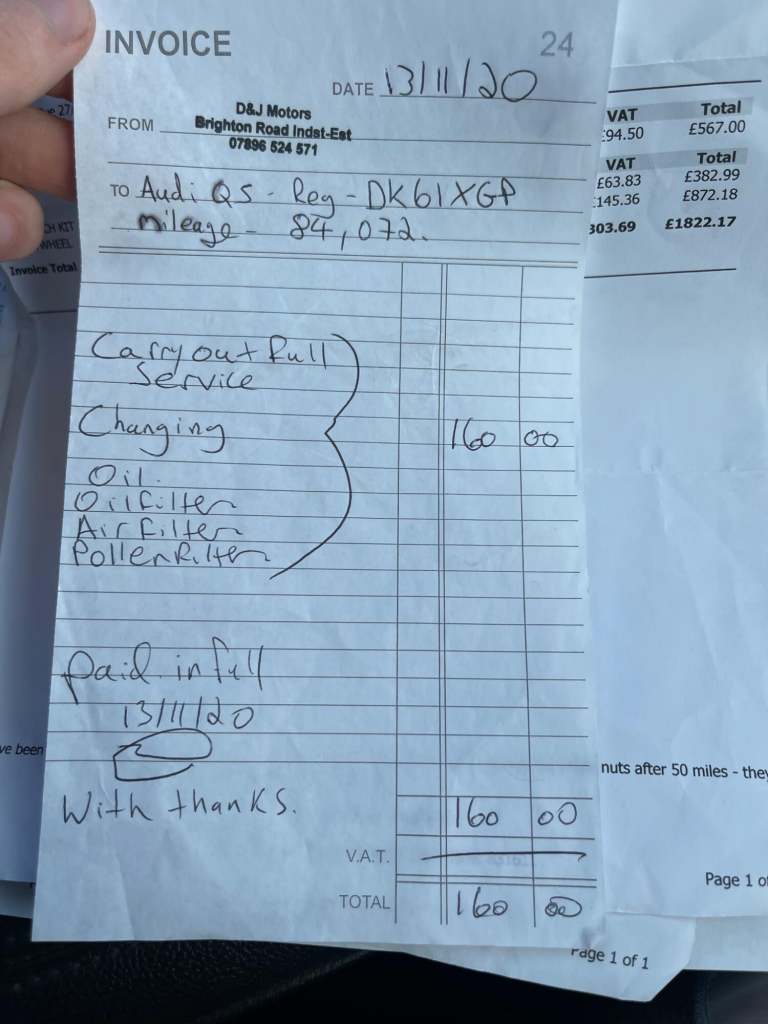 INVOICE 24
DATE 13/11/20
FROM D&J Motors
Brighton Road Indst-Est
07896 524 571
TO Audi Q5 - Reg - DK61XGP
mileage - 84,072.
Carry out full
Service
Changing 160 00
Oil.
Oil filter
Air filter
Pollen filter
paid in full
13/11/20
With thanks.
160 00
V.A.T.
TOTAL 160 00
VAT Total
£94.50 £567.00
VAT Total
£63.83 £382.99
£145.36 £872.18
303.69 £1822.17
KIT
WHEEL
Invoice Total
ve been
nuts after 50 miles - they
Page 1 of
Page 1 of 1